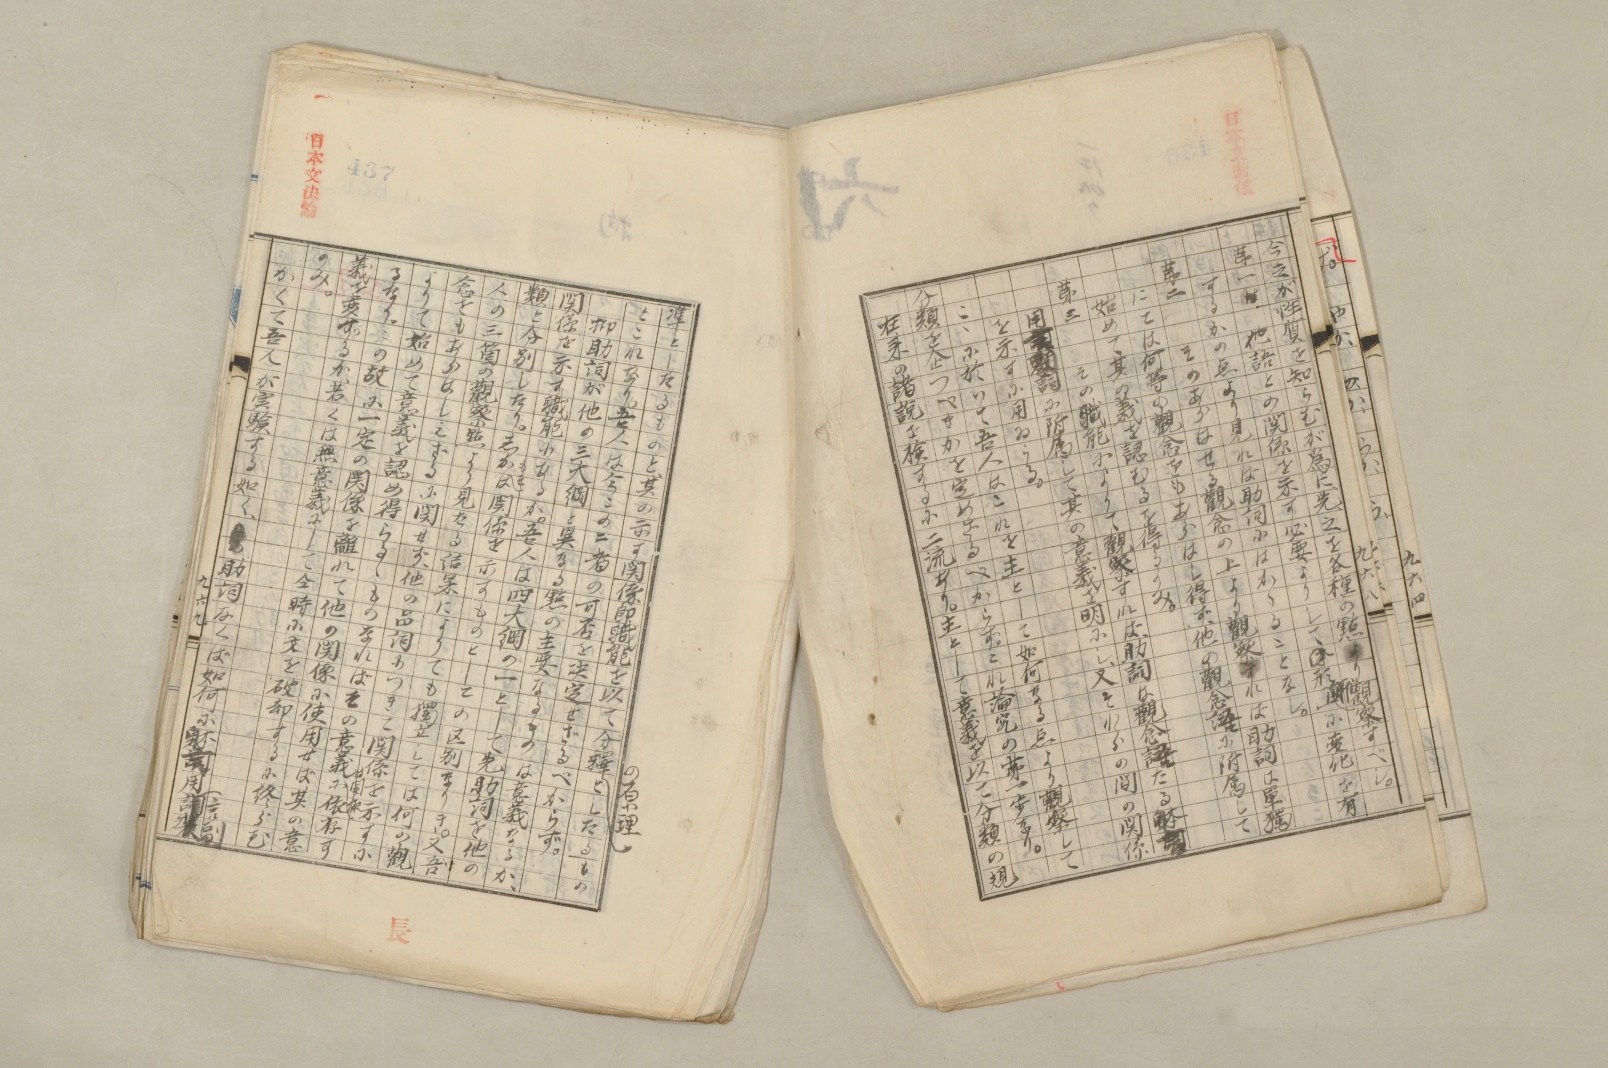 今之が性質を知らむが爲に先之を各種の點より觀察すべし。
第一 他語との關係を示す必要より して 語形上に變化を有
するかの点より見れは助詞にはかゝることなし。
そのあらはせる觀念の上より觀察すれば助詞は單獨
第二
にては何等の觀念をもあらはし得ず、他の觀念語に附屬して
始めて其の義を認むるを得るのみ。
第三 その職能によりて觀察すれば、助詞は觀念語たる體
用詞に附屬して其の意義を明にし、又それらの間の關係
を示すに用ゐらる。
こゝに於いて吾人はこれを主として如何なる点より觀察して
分類を企つべきかを定めざるべからず。これ論究の第一歩なり。
在來の諸説を檢するに二流あり。主として意義を以て分類の規
準としたるものと、其の示す關係即職能を以て分類
の原理
としたるもの
とこれなり。吾人は先この二者の可否を決定せざるべからず。
抑助詞が他の三大綱と異なる點の主要なるものは意義なるか、
關係を示す職能にあるか。吾人は四大綱の一として先助詞を他の
類と分別したり。しかは關係を示すものとしての區別なりき。又吾
人の三箇の觀察點より見たる結果によりても獨立しては何の觀
念をもあらはしえざるに關せず他の品詞につきて關係を示すに
よりて始めて意義を認め得らるゝものなればその意義は關係に依存す
るなり。この故に一定の關係を離れて他の關係に使用せば其の意
義を變ずるか若くは無意義にして全時に文を破却するに終らむ
のみ。
かくて吾人が實驗する如く、助詞なくば如何に體用副
日本文法論
437
長
九六九
九六八
九六四